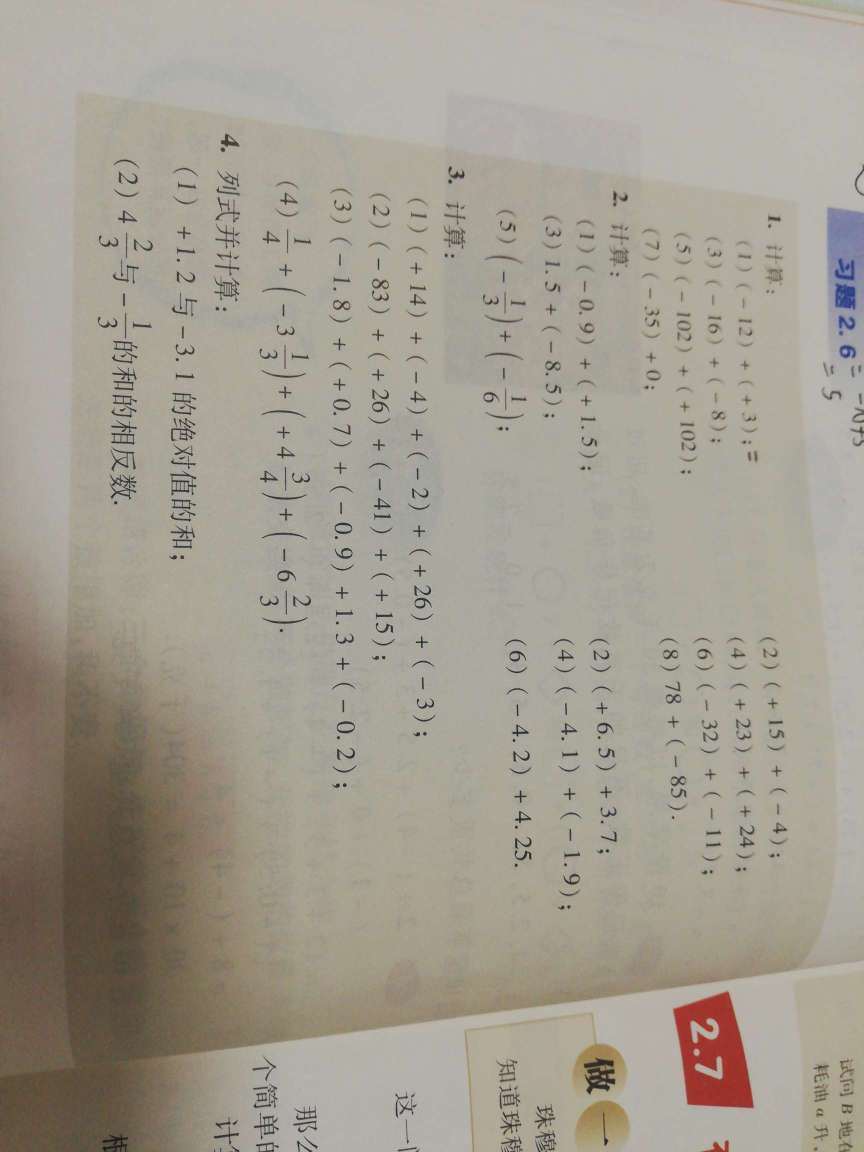 习题 2.6
= 5
1. 计算：
(1) (-12) + (+3); =
(2) (+15) + (-4);
(3) (-16) + (-8);
(4) (+23) + (+24);
(5) (-102) + (+102);
(6) (-32) + (-11);
(7) (-35) + 0;
(8) 78 + (-85).
2. 计算：
(1) (-0.9) + (+1.5);
(2) (+6.5) + 3.7;
(3) 1.5 + (-8.5);
(4) (-4.1) + (-1.9);
(5) (-1/3) + (-1/6);
(6) (-4.2) + 4.25.
3. 计算：
(1) (+14) + (-4) + (-2) + (+26) + (-3);
(2) (-83) + (+26) + (-41) + (+15);
(3) (-1.8) + (+0.7) + (-0.9) + 1.3 + (-0.2);
(4) 1/4 + (-3 1/3) + (+4 3/4) + (-6 2/3).
4. 列式并计算：
(1) +1.2 与 -3.1 的绝对值的和；
(2) 4 2/3 与 -1/3 的和的相反数.
试问 B 地在
耗油 a 升，
2.7
做一
珠穆
知道珠穆
这一
那么
个简单的
计